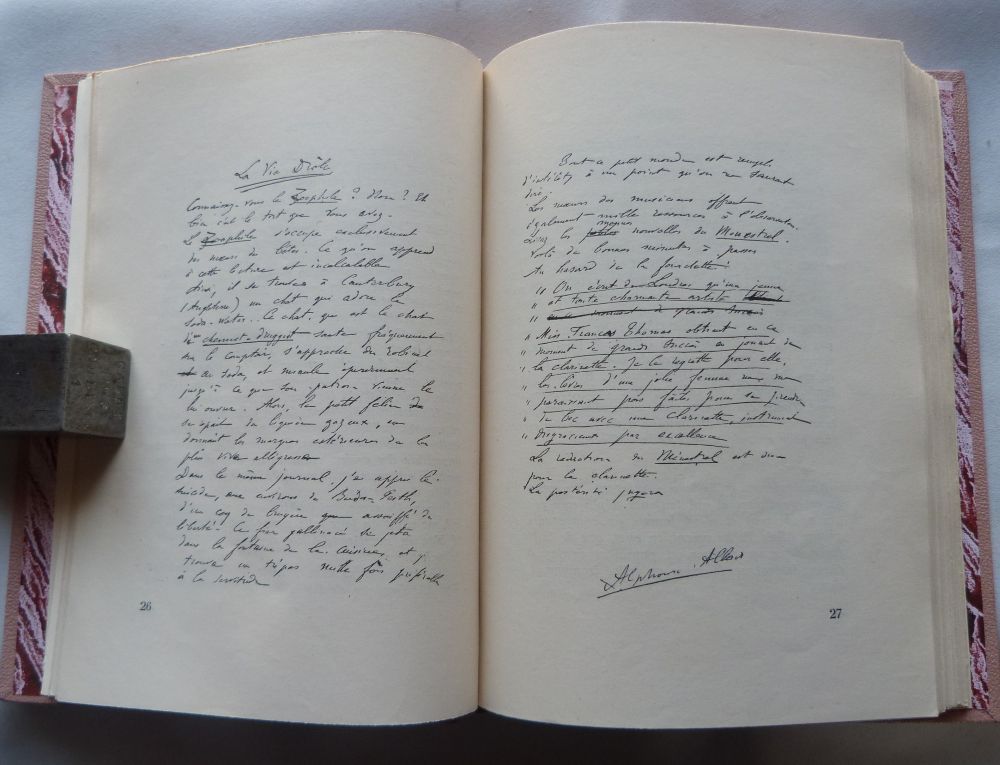 La Vie Drôle
Connaissez-vous le Zoophile ? Non ? Eh
bien c'est le tort que vous avez.
Le Zoophile s'occupe exclusivement
des mœurs des bêtes. Ce qu'on apprend
à cette lecture est incalculable
Ainsi, il se trouve à Canterbury
(Angleterre) un chat qui adore le
soda-water. Ce chat, qui est le chat
d'un, saute fréquemment
sur le comptoir, s'approche du robinet
au soda, et miaule éperdument
jusqu'à ce que son patron vienne le
lui ouvrir. Alors, le petit félin
se repaît du liquide gazeux, en
donnant les marques extérieures de la
plus vive allégresse
Dans le même journal, j'ai appris le
suicide, aux environs de Buda-Pesth,
d'un coq de bruyère que assoiffé de
liberté. Ce fier gallinacé se jeta
dans la fontaine de la cuisine et y
trouva un trépas mille fois préférable
à la servitude
26
Tout ce petit monde est rempli
d'intérêt à un point qu'on ne saurait
dire.
Les mœurs des musiciens offrent
également mille ressources à l'observation.
Lisez les menues nouvelles du Ménestrel.
Voilà de bonnes minutes à passer
Au hasard de la fourchette :
" On écrit de Londres qu'une jeune
" et toute charmante artiste
"
" Miss Frances Thomas obtient en ce
" moment de grands succès en jouant de
" la clarinette. Je le regrette pour elle.
" Les lèvres d'une jolie femme ne me
" paraissent pas faites pour
" ce bec avec une clarinette, instrument
" disgracieux par excellence
La rédaction du Ménestrel est dure
pour la clarinette.
La postérité jugera
Alphonse Allais
27